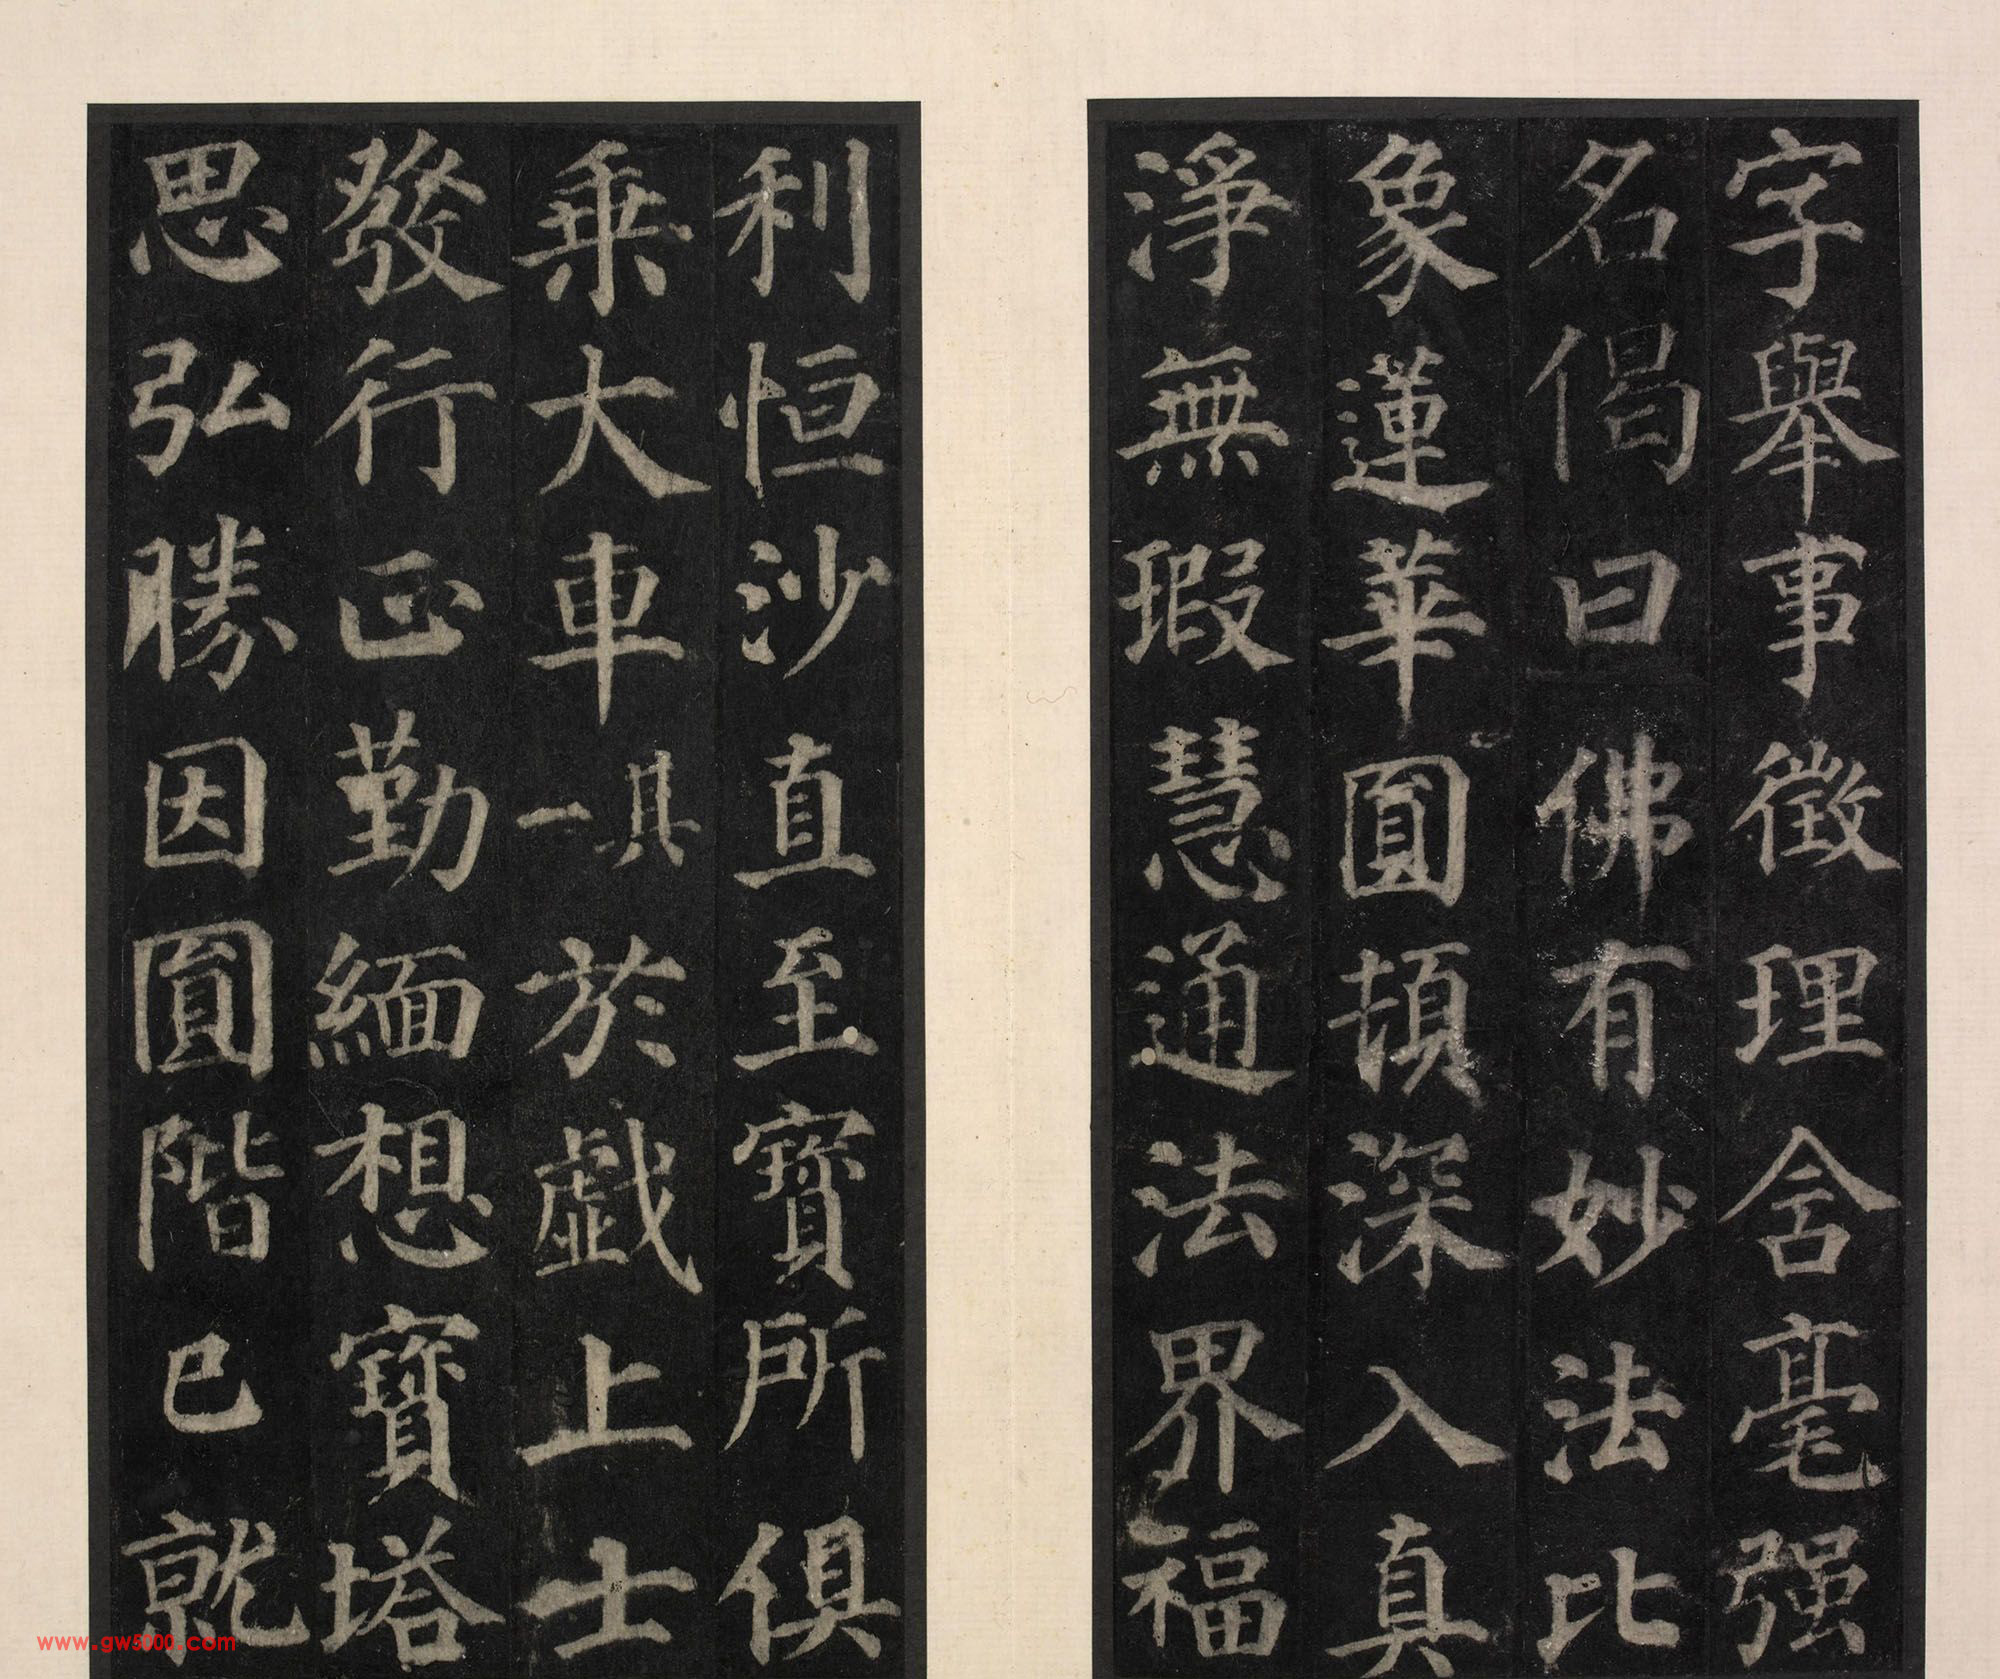 字舉事徵理含毫强
名偈曰佛有妙法比
象蓮華圓頓深入真
淨無瑕慧通法界福
利恒沙直至寶所俱
乗大車一具於戯上士
發行正勤緬想寶塔
思弘勝因圓階已就
www.gw5000.com